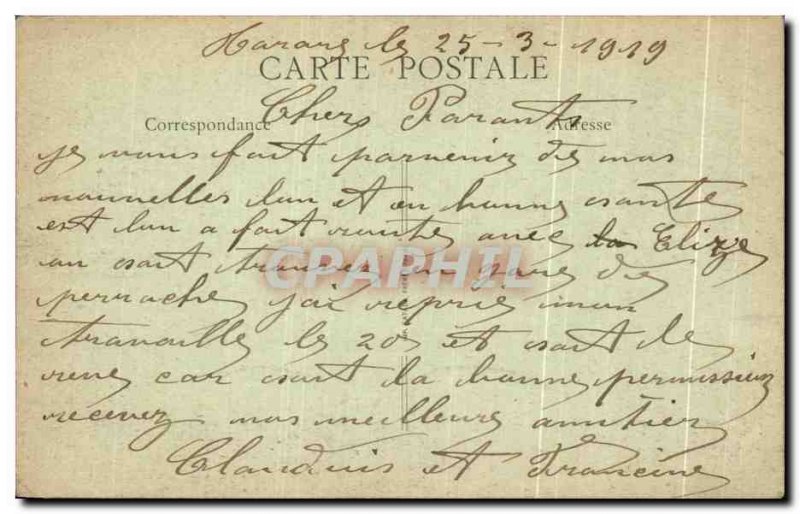 Harare le 25-3-1919
CARTE POSTALE
Correspondance Adresse
Chers Parants
je vous fait parvenir des mos
nouvelles lun et en bonne sante
est lun a fait route avec la Elize
on sait trouvez en gare de
perrache jai repris mon
travaille le 20 et sait de
rene car sait la bonne permission
recevez mos meilleure amitier
Claudius et Francine
CPAPHIL